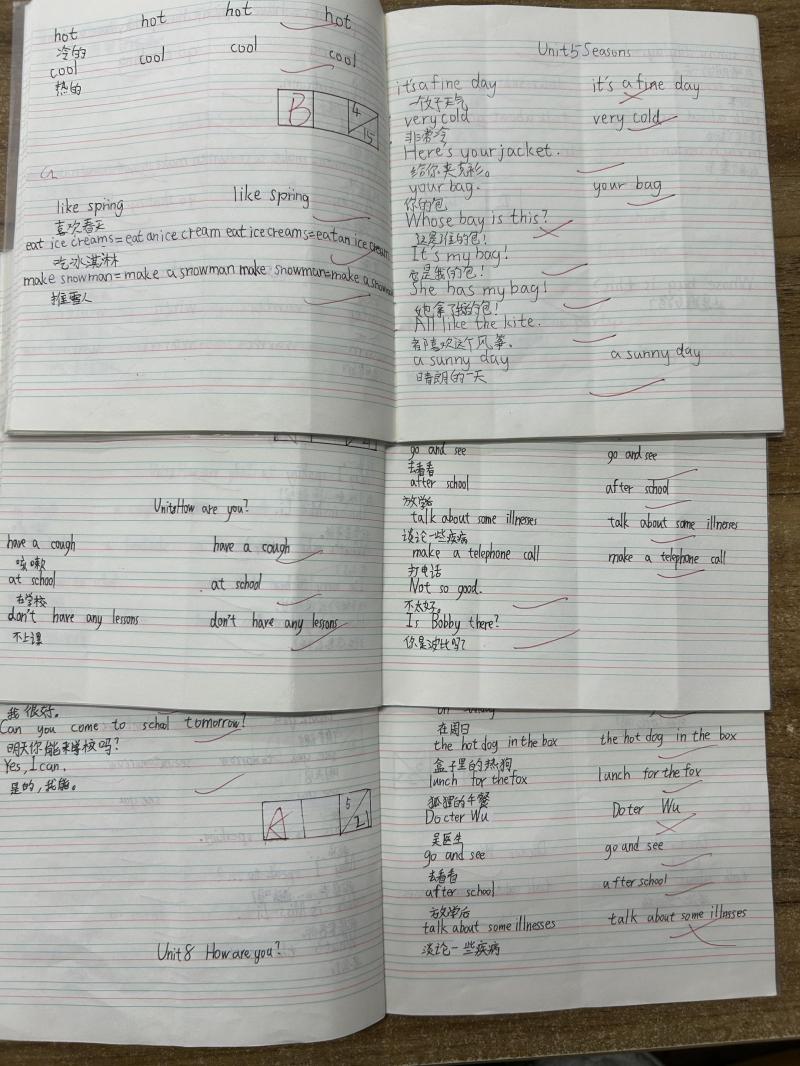 hot hot hot hot
冷的
cool cool cool cool
热的
B 4/15
like spring like spring
喜欢春天
eat ice creams=eat an ice cream eat ice creams=eat an ice cream
吃冰淇淋
make snowman=make a snowman make snowman=make a snowman
堆雪人
Unit5 Seasons
it's a fine day it's a fine day
一个好天气
very cold very cold
非常冷
Here's your jacket.
给你夹克衫。
your bag. your bag
你的包
Whose bay is this?
这是谁的包!
It's my bag!
是我的包!
She has my bag!
她拿了我的包!
All like the kite.
都喜欢这个风筝。
a sunny day a sunny day
晴朗的一天
How are you?
have a cough have a cough
咳嗽
at school at school
在学校
don't have any lessons don't have any lessons
不上课
go and see go and see
去看看
after school after school
放学后
talk about some illnesses talk about some illnesses
谈论一些疾病
make a telephone call make a telephone call
打电话
Not so good.
不太好。
Is Bobby there?
你是波比吗?
我很好。
Can you come to school tomorrow?
明天你能来学校吗?
Yes, I can.
是的,我能。
A 5/21
Unit 8 How are you?
在周日
the hot dog in the box the hot dog in the box
盒子里的热狗
lunch for the fox lunch for the fox
狐狸的午餐
Docter Wu Doter Wu
吴医生
go and see go and see
去看看
after school after school
放学后
talk about some illnesses talk about some illnesses
谈论一些疾病